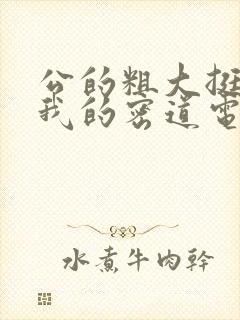 公的粗大挺
我的密道電
水煮牛肉幹